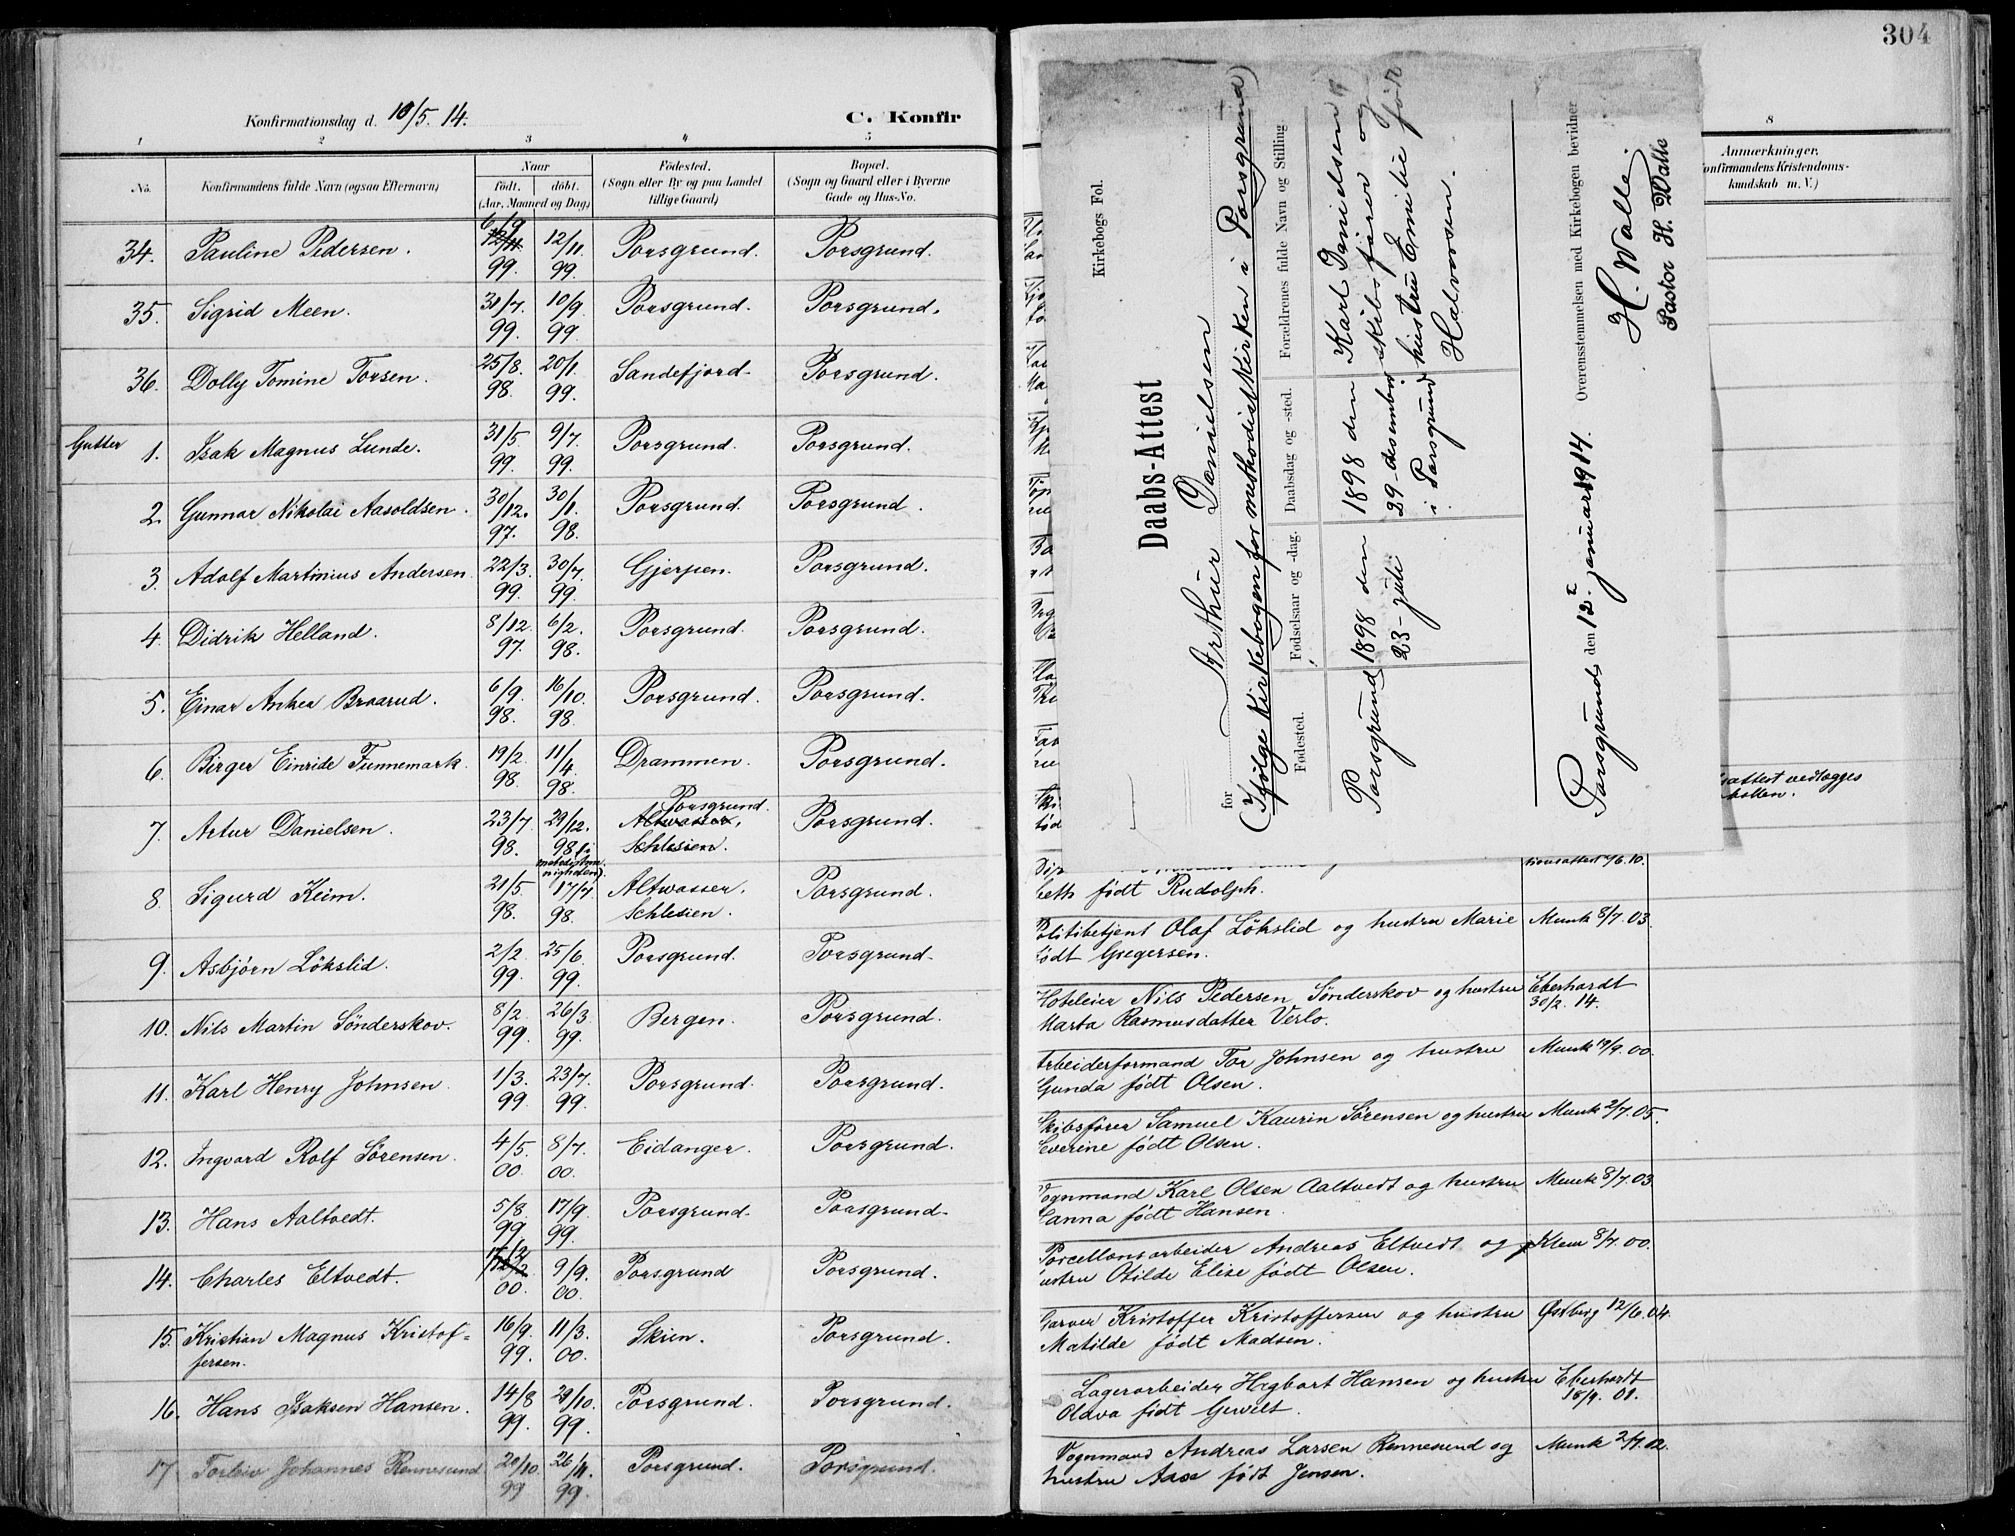 304
Konfirmationsdag d. 10/5. 14.
C. Konfir
1 2 3 4 5
No. Konfirmandens fulde Navn (ogsaa Efternavn) Naar født. døbt. (Aar, Maaned og Dag) Fødested. (Sogn eller By og paa Landet tillige Gaard) Bopæl. (Sogn og Gaard eller i Byerne Gade og Hus-No.
34. Pauline Pedersen. 6/9 12/11 99. 12/11 99. Porsgrund. Porsgrund.
35. Sigrid Meen. 31/7 99. 10/9 99. Porsgrund. Porsgrund.
36. Dolly Tomine Torsen. 25/8 98. 20/1. 99. Sandefjord. Porsgrund.
Gutter
1. Isak Magnus Lunde. 31/5 99. 9/7. 99. Porsgrund. Porsgrund.
2. Gunnar Nikolai Aasoldsen. 30/12. 97. 30/1. 98. Porsgrund. Porsgrund.
3. Adolf Martinius Andersen 22/3. 99. 30/7 99. Gjerpen. Porsgrund.
4. Didrik Helland. 8/12 97. 6/2. 98. Porsgrund. Porsgrund.
5. Einar Anker Braarud. 6/9. 98. 16/10. 98. Porsgrund. Porsgrund.
6. Birger Einride Funnemark. 19/2. 98. 11/4. 98. Drammen. Porsgrund.
7. Artur Danielsen. 23/7 98. 29/12. 98 Porsgrund. Altwasser, Schlesien. Porsgrund.
8. Sigurd Keim. 21/5. 98. 17/7 98. Altwasser, Schlesien. Porsgrund.
9. Asbjørn Løkslid. 2/2. 99. 25/6. 99. Porsgrund. Porsgrund.
10. Nils Martin Sønderskov. 8/2. 99. 26/3. 99. Bergen. Porsgrund.
11. Karl Henry Johnsen. 1/3. 99. 23/7. 99. Porsgrund. Porsgrund.
12. Ingvard Rolf Sørensen. 4/5. 00. 8/7. 00. Eidanger. Porsgrund.
13. Hans Aaltvedt. 5/8. 99 17/9. 99. Porsgrund. Porsgrund.
14. Charles Eltvedt. 00. 9/9. 00. Porsgrund Porsgrund.
15. Kristian Magnus Kristof-
fersen. 16/9. 99. 11/3. 00. Skien. Porsgrund.
16. Hans Isaksen Hansen. 14/8 99. 29/10. 99. Porsgrund. Porsgrund.
17 Torleiv Johannes Rennesund 20/10. 99 26/11. 99. Porsgrund. Porsgrund.
Kirkebogs Fol.
Daabs-Attest
for Arthur Danielsen
(Ifølge Kirkebogen for methodistkirken i Porsgrund)
Fødested. Fødselsaar og -dag. Daabsdag og -sted. Forældrenes fulde Navn og Stilling
Porsgrund 1898 den 1898 den Karl Danielsen
23- juli 29-desember skibsfører og
i Porsgrund hustru Emilie født
Halvorsen.
Overensstemmelsen med Kirkebogen bevidner
Porsgrund, den 12te januar 1914.
H. Walle.
Pastor H. Walle
8
Anmærkninger.
onfirmandens Kristendoms-
kundskab m. V.)
sattest vedlægges
eth født Rudolph.
Politibetjent Olaf Løkslid og hustru Marie Munk 8/7. 03.
født Gregersen.
Hoteleier Nils Pedersen Sønderskov og hustru Eberhardt
30/2. 14.
Marta Rasmusdatter Verlo.
Arbeiderformand Tor Johnsen og hustru Munk 19/9. 00.
Gunda født Olsen.
Skibsfører Samuel Kaurin Sørensen og hustru Munk 2/7. 05.
Severine født Olsen.
Vognmand Karl Olsen Aaltvedt og hustru Munk 8/7. 03
født Hansen.
Porcellansarbeider Andreas Eltvedt og Klem 8/7. 00.
hustru Otilde Elise født Olsen.
Garver Kristoffer Kristoffersen og hustru Østberg 12/6. 04.
Matilde født Madsen.
Lagerarbeider Hægbart Hansen og hustru Eberhardt
18/9. 01.
Olava født Gervelt.
Vognmand Andreas Larsen Rennesund og Munk 2/7. 02.
hustru Aase født Jensen.